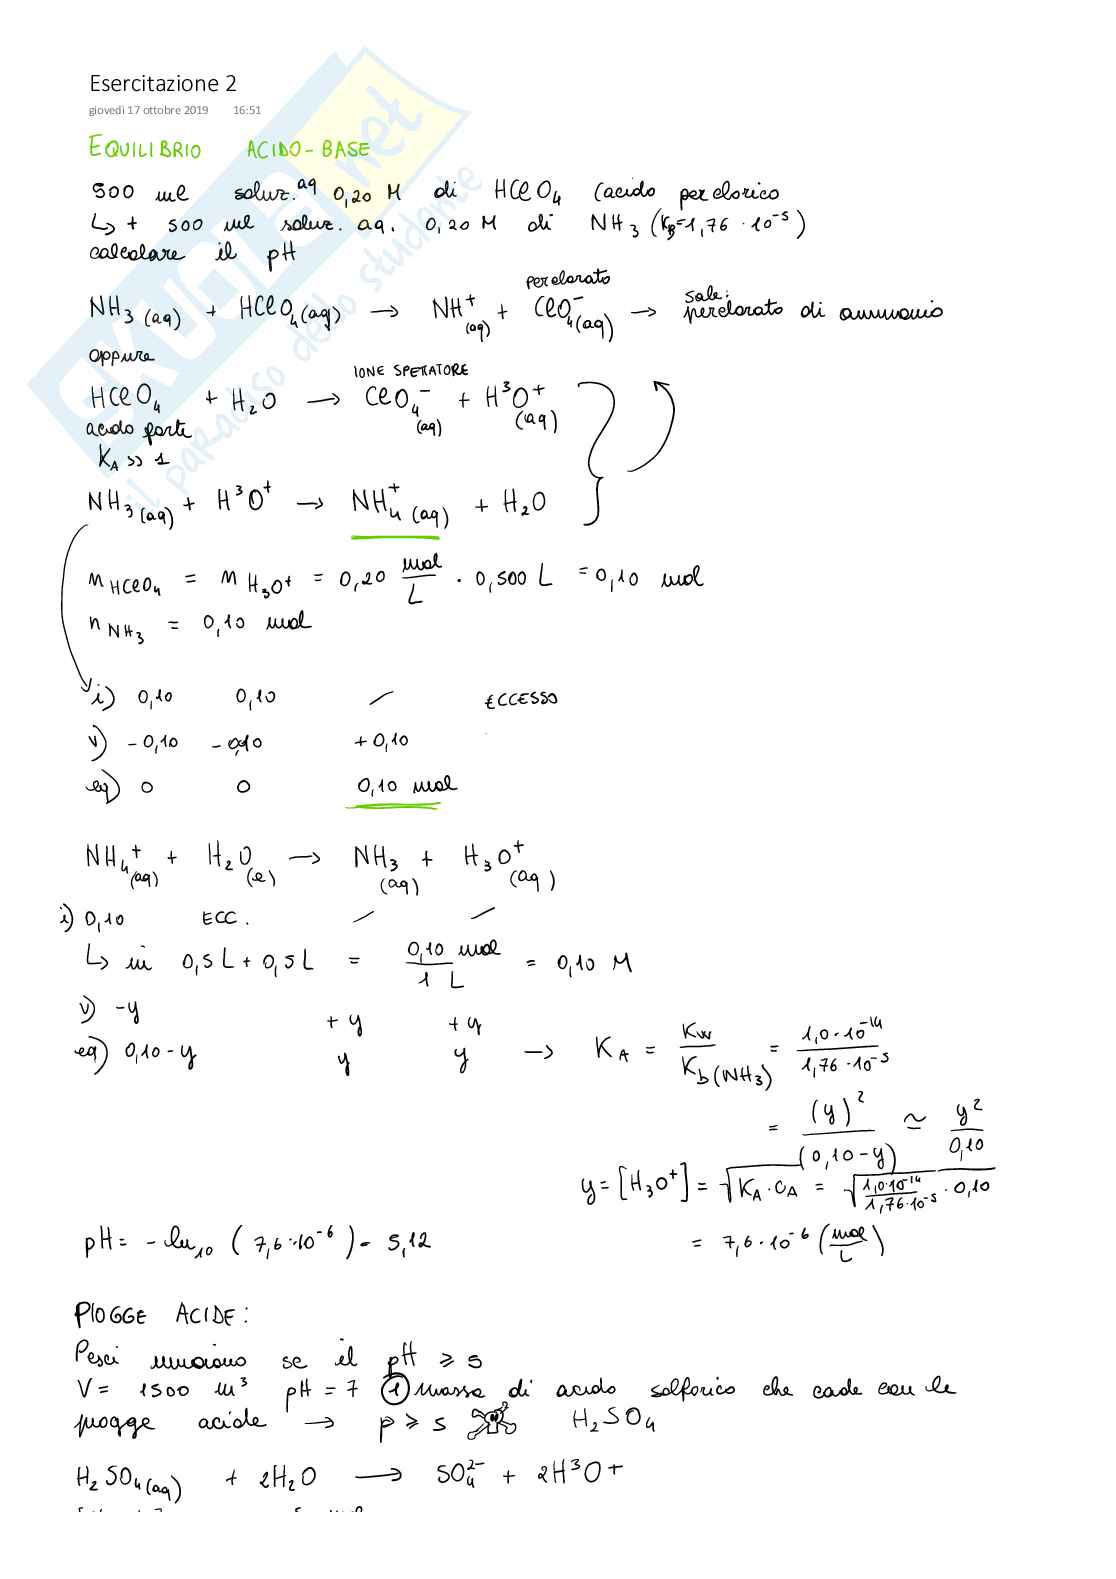 Esercitazione 2
giovedì 17 ottobre 2019 16:51
EQUILIBRIO ACIDO-BASE
500 ml soluz. aq 0,20 M di HClO4 (acido perclorico
↳ + 500 ml soluz. aq. 0,20 M di NH3 (KB=1,76 · 10^-5)
calcolare il pH
perclorato
NH3 (aq) + HClO4 (aq) → NH+ (aq) + ClO4^- (aq) → sale: perclorato di ammonio
oppure
IONE SPETTATORE
HClO4 + H2O → ClO4^- (aq) + H^3O^+ (aq)
acido forte
KA >> 1
NH3 (aq) + H^3O^+ → NH4^+ (aq) + H2O
nHClO4 = nH3O+ = 0,20 mol/L · 0,500 L = 0,10 mol
nNH3 = 0,10 mol
i) 0,10 0,10 / ECCESSO
v) -0,10 -0,10 +0,10
eq) 0 0 0,10 mol
NH4^+ (aq) + H2O (l) → NH3 (aq) + H3O^+ (aq)
i) 0,10 ECC. / /
↳ in 0,5 L + 0,5 L = 0,10 mol / 1 L = 0,10 M
v) -y +y +y
eq) 0,10-y y y → KA = Kw / Kb(NH3) = 1,0·10^-14 / 1,76·10^-5
= (y)^2 / (0,10-y) ≃ y^2 / 0,10
y = [H3O+] = √KA·CA = √1,0·10^-14 / 1,76·10^-5 · 0,10
pH = - ln10 (7,6·10^-6) = 5,12 = 7,6·10^-6 (mol/L)
PIOGGE ACIDE:
Pesci muoiono se il pH ≥ 5
V = 1500 m^3 pH = 7 1 massa di acido solforico che cade con le
piogge acide → p ≥ 5 H2SO4
H2SO4 (aq) + 2H2O → SO4^2- + 2H^3O+
SKUOLA.net
il paradiso dello studente